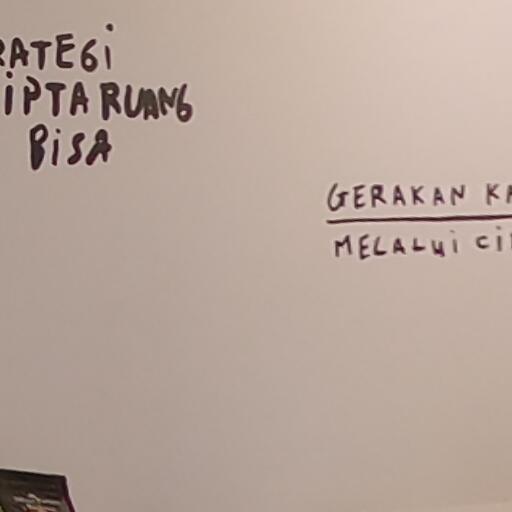 RATEGi
iPTA RUANG
BiSA
GERAKAN KA
MELALui Ci